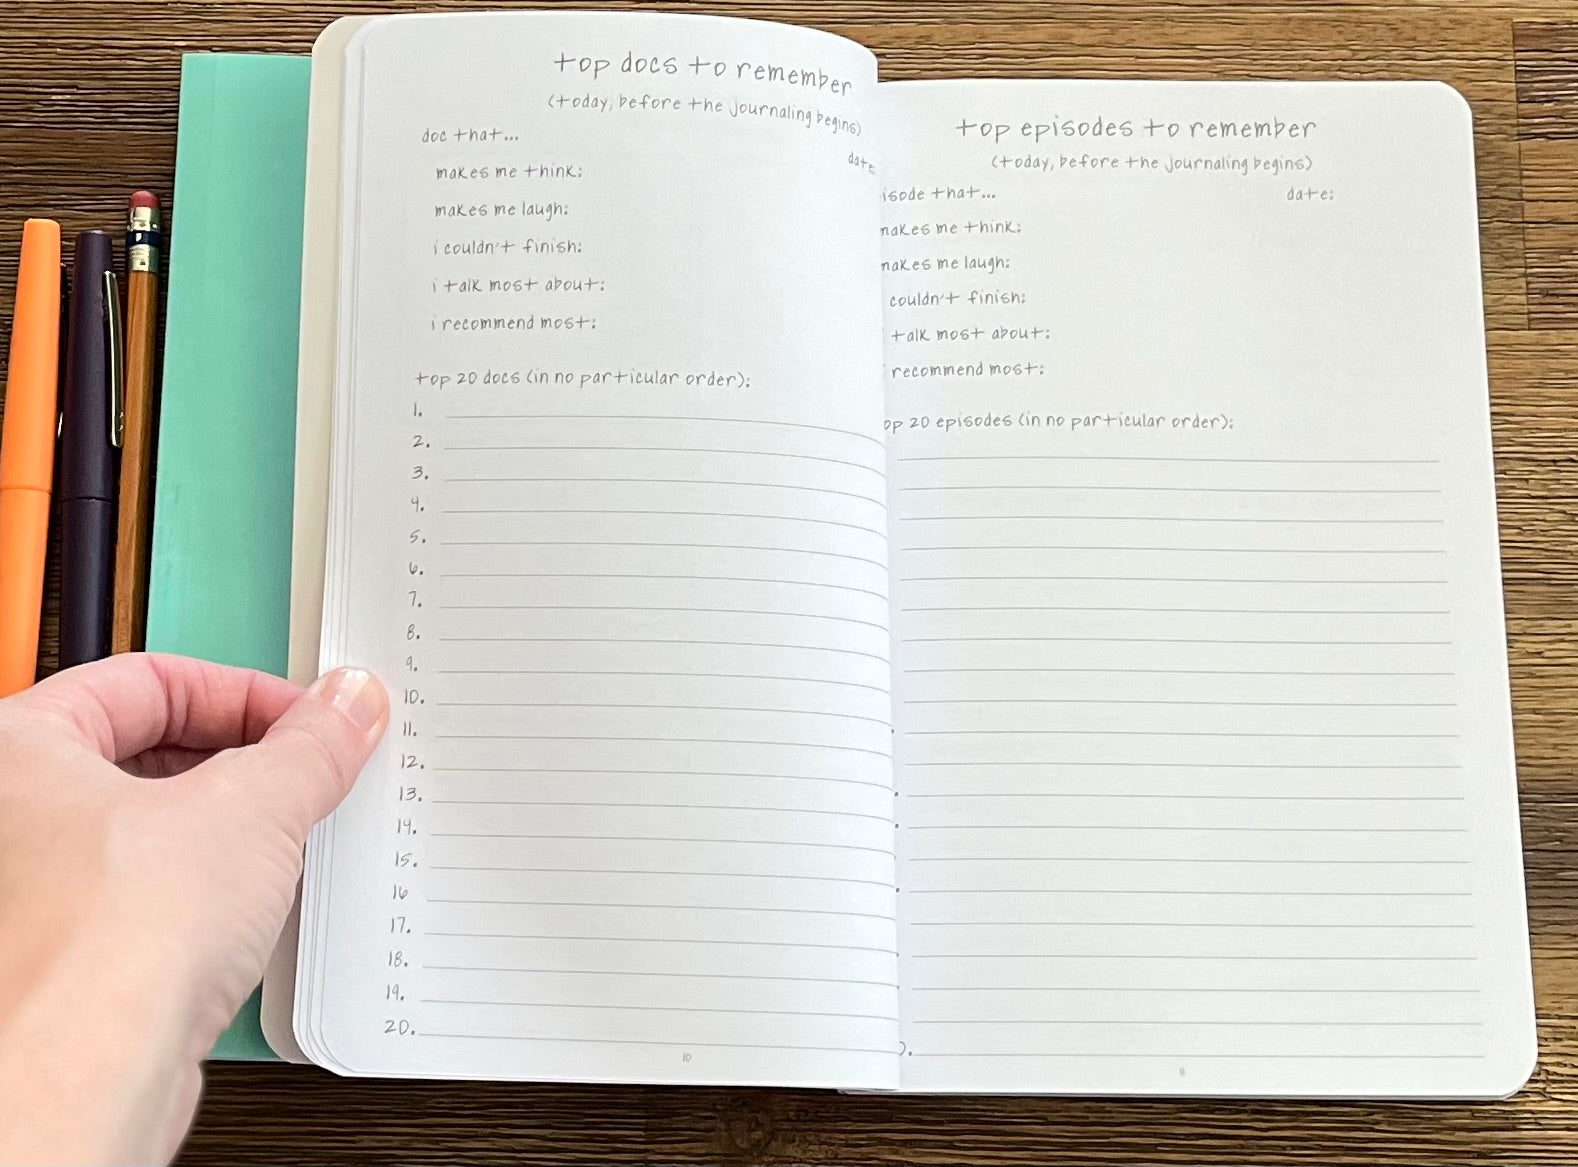 top docs to remember
(today, before the journaling begins)
doc that...
date:
makes me think:
makes me laugh:
i couldn't finish:
i talk most about:
i recommend most:
top 20 docs (in no particular order):
1.
2.
3.
4.
5.
6.
7.
8.
9.
10.
11.
12.
13.
14.
15.
16
17.
18.
19.
20.
10
top episodes to remember
(today, before the journaling begins)
isode that...
date:
makes me think:
makes me laugh:
couldn't finish:
talk most about:
recommend most:
op 20 episodes (in no particular order):